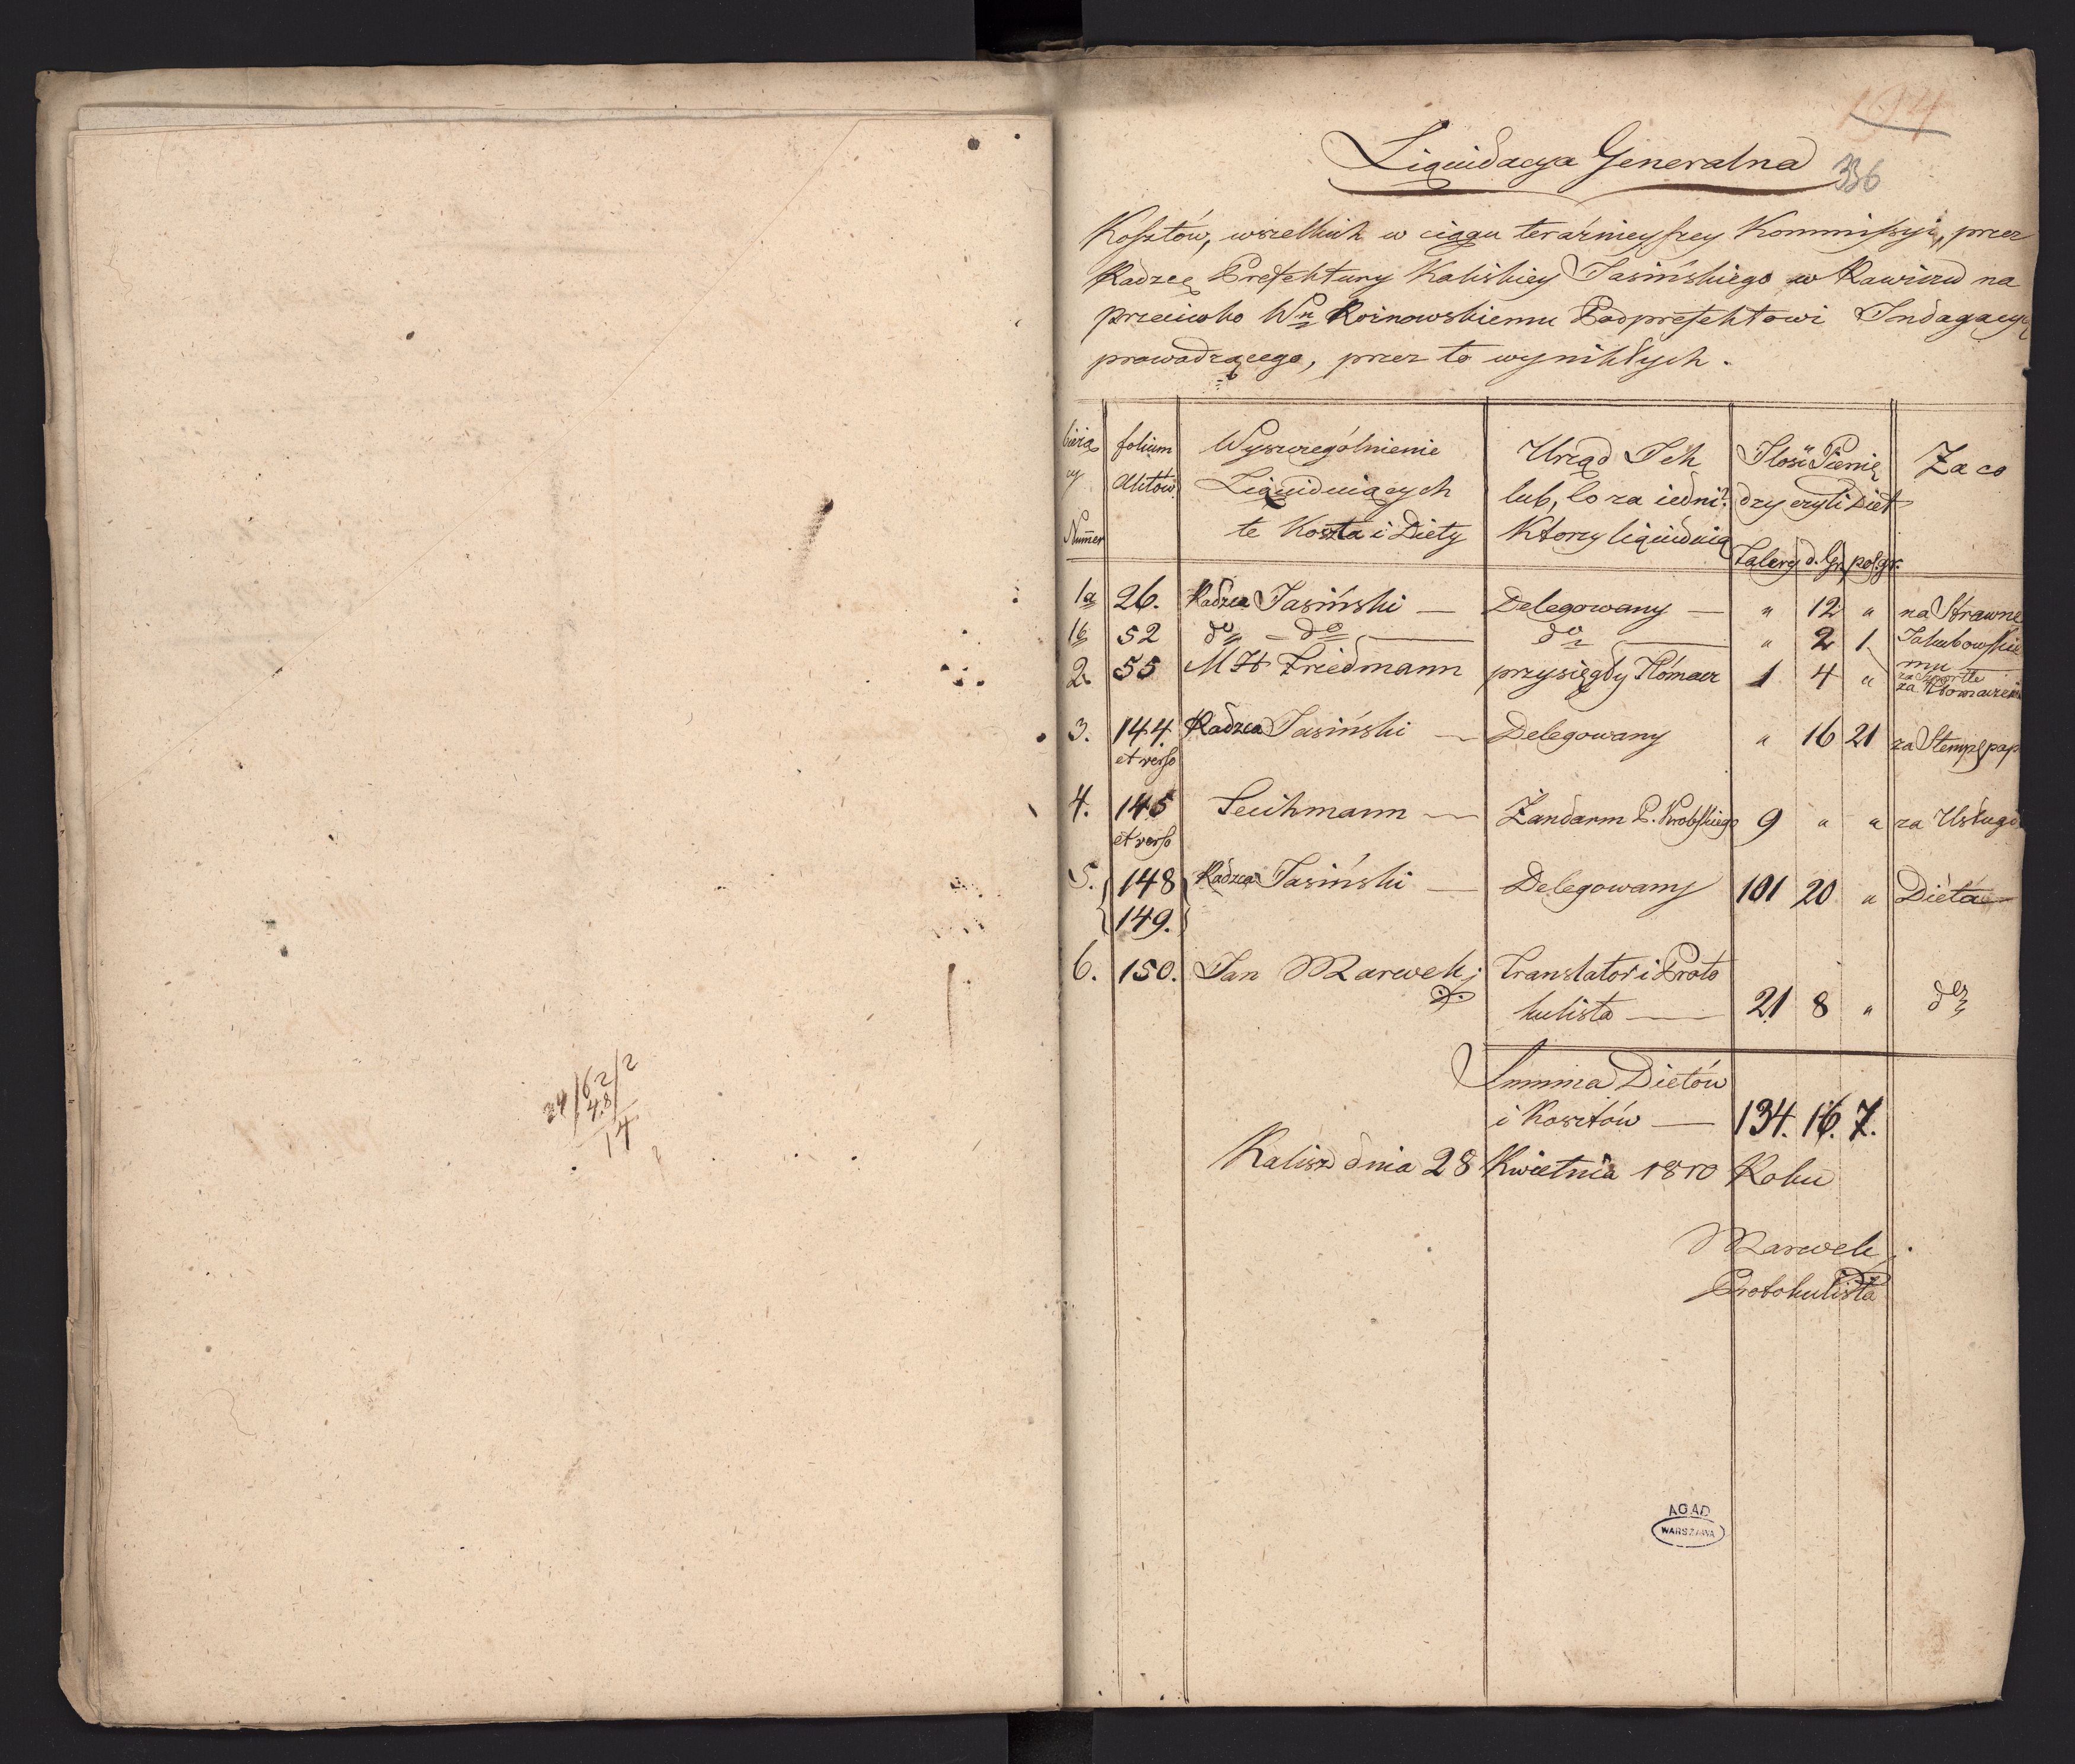 24/62/2
48
14
194
336
Liquidacya Generalna
Kosztów, wszelkich w ciągu teraźnieyszey Kommissyi, przez
Radzcę Prefektury Kaliskiey Jasińskiego w Rawiczu na
przeciwko Wn Roznowskiemu Podprefektowi Indagacyę
prowadzącego, przez to wynikłych.
Bieżą
cy
Numer
folium
Aktów
Wyszczególnienie
Liquiduiących
te Koszta i Diety
Urząd Ich
lub, Co za iedni,
Ktorzy liquiduią
Ilość Pienię
dzy czyli Diet
Talery d. Gr. pol. gr.
Za co
1a 26. Radzca Jasiński — Delegowany — " 12 " na Strawne
1b 52 do — do — do — " 2 1 Jakubowskie
mu
2. 55 M H Friedmann przysięgły Tłómacz 1 4 " za Sportle
za Tłomaczenie
3. 144. Radzca Jasiński — Delegowany " 16 21 za Stempl pap
et verso
4. 145 Leichmann — Żandarm P. Krobskiego 9 " " za Usługi
et verso
5. 148 Radzca Jasiński — Delegowany 101 20 " Diéta
149.
6. 150. Jan Marwek; Translator i Proto
kulista — 21 8 " do
Summa Dietów
i Kosztów — 134. 16. 7.
Kalisz dnia 28 Kwietnia 1810 Roku
Marwek
Protokulista
AGAD
WARSZAWA